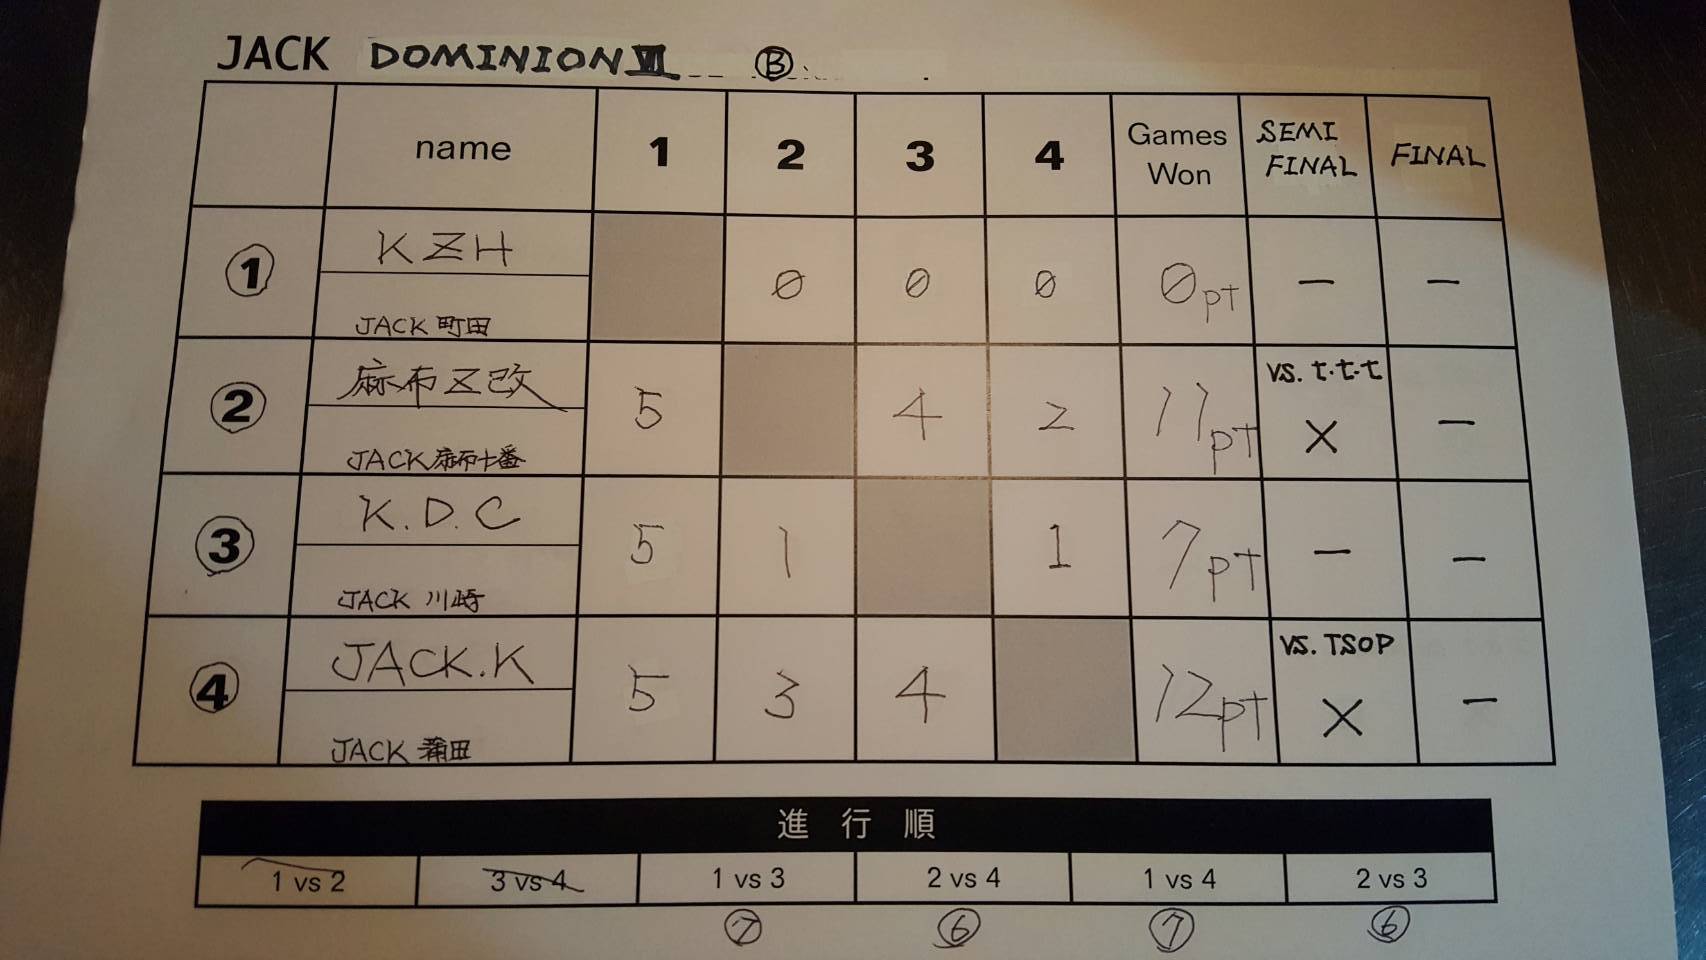 JACK DOMINION Ⅶ Ⓑ
name 1 2 3 4 Games Won SEMI FINAL FINAL
① KZH 0 0 0 0pt - -
JACK 町田
② 麻布Z改 5 4 2 11pt vs. t.t.t × -
JACK 麻布十番
③ K.D.C 5 1 1 7pt - -
JACK 川崎
④ JACK.K 5 3 4 12pt vs. TSOP × -
JACK 蒲田
進行順
1 vs 2 3 vs 4 1 vs 3 2 vs 4 1 vs 4 2 vs 3
⑦ ⑥ ⑦ ⑥